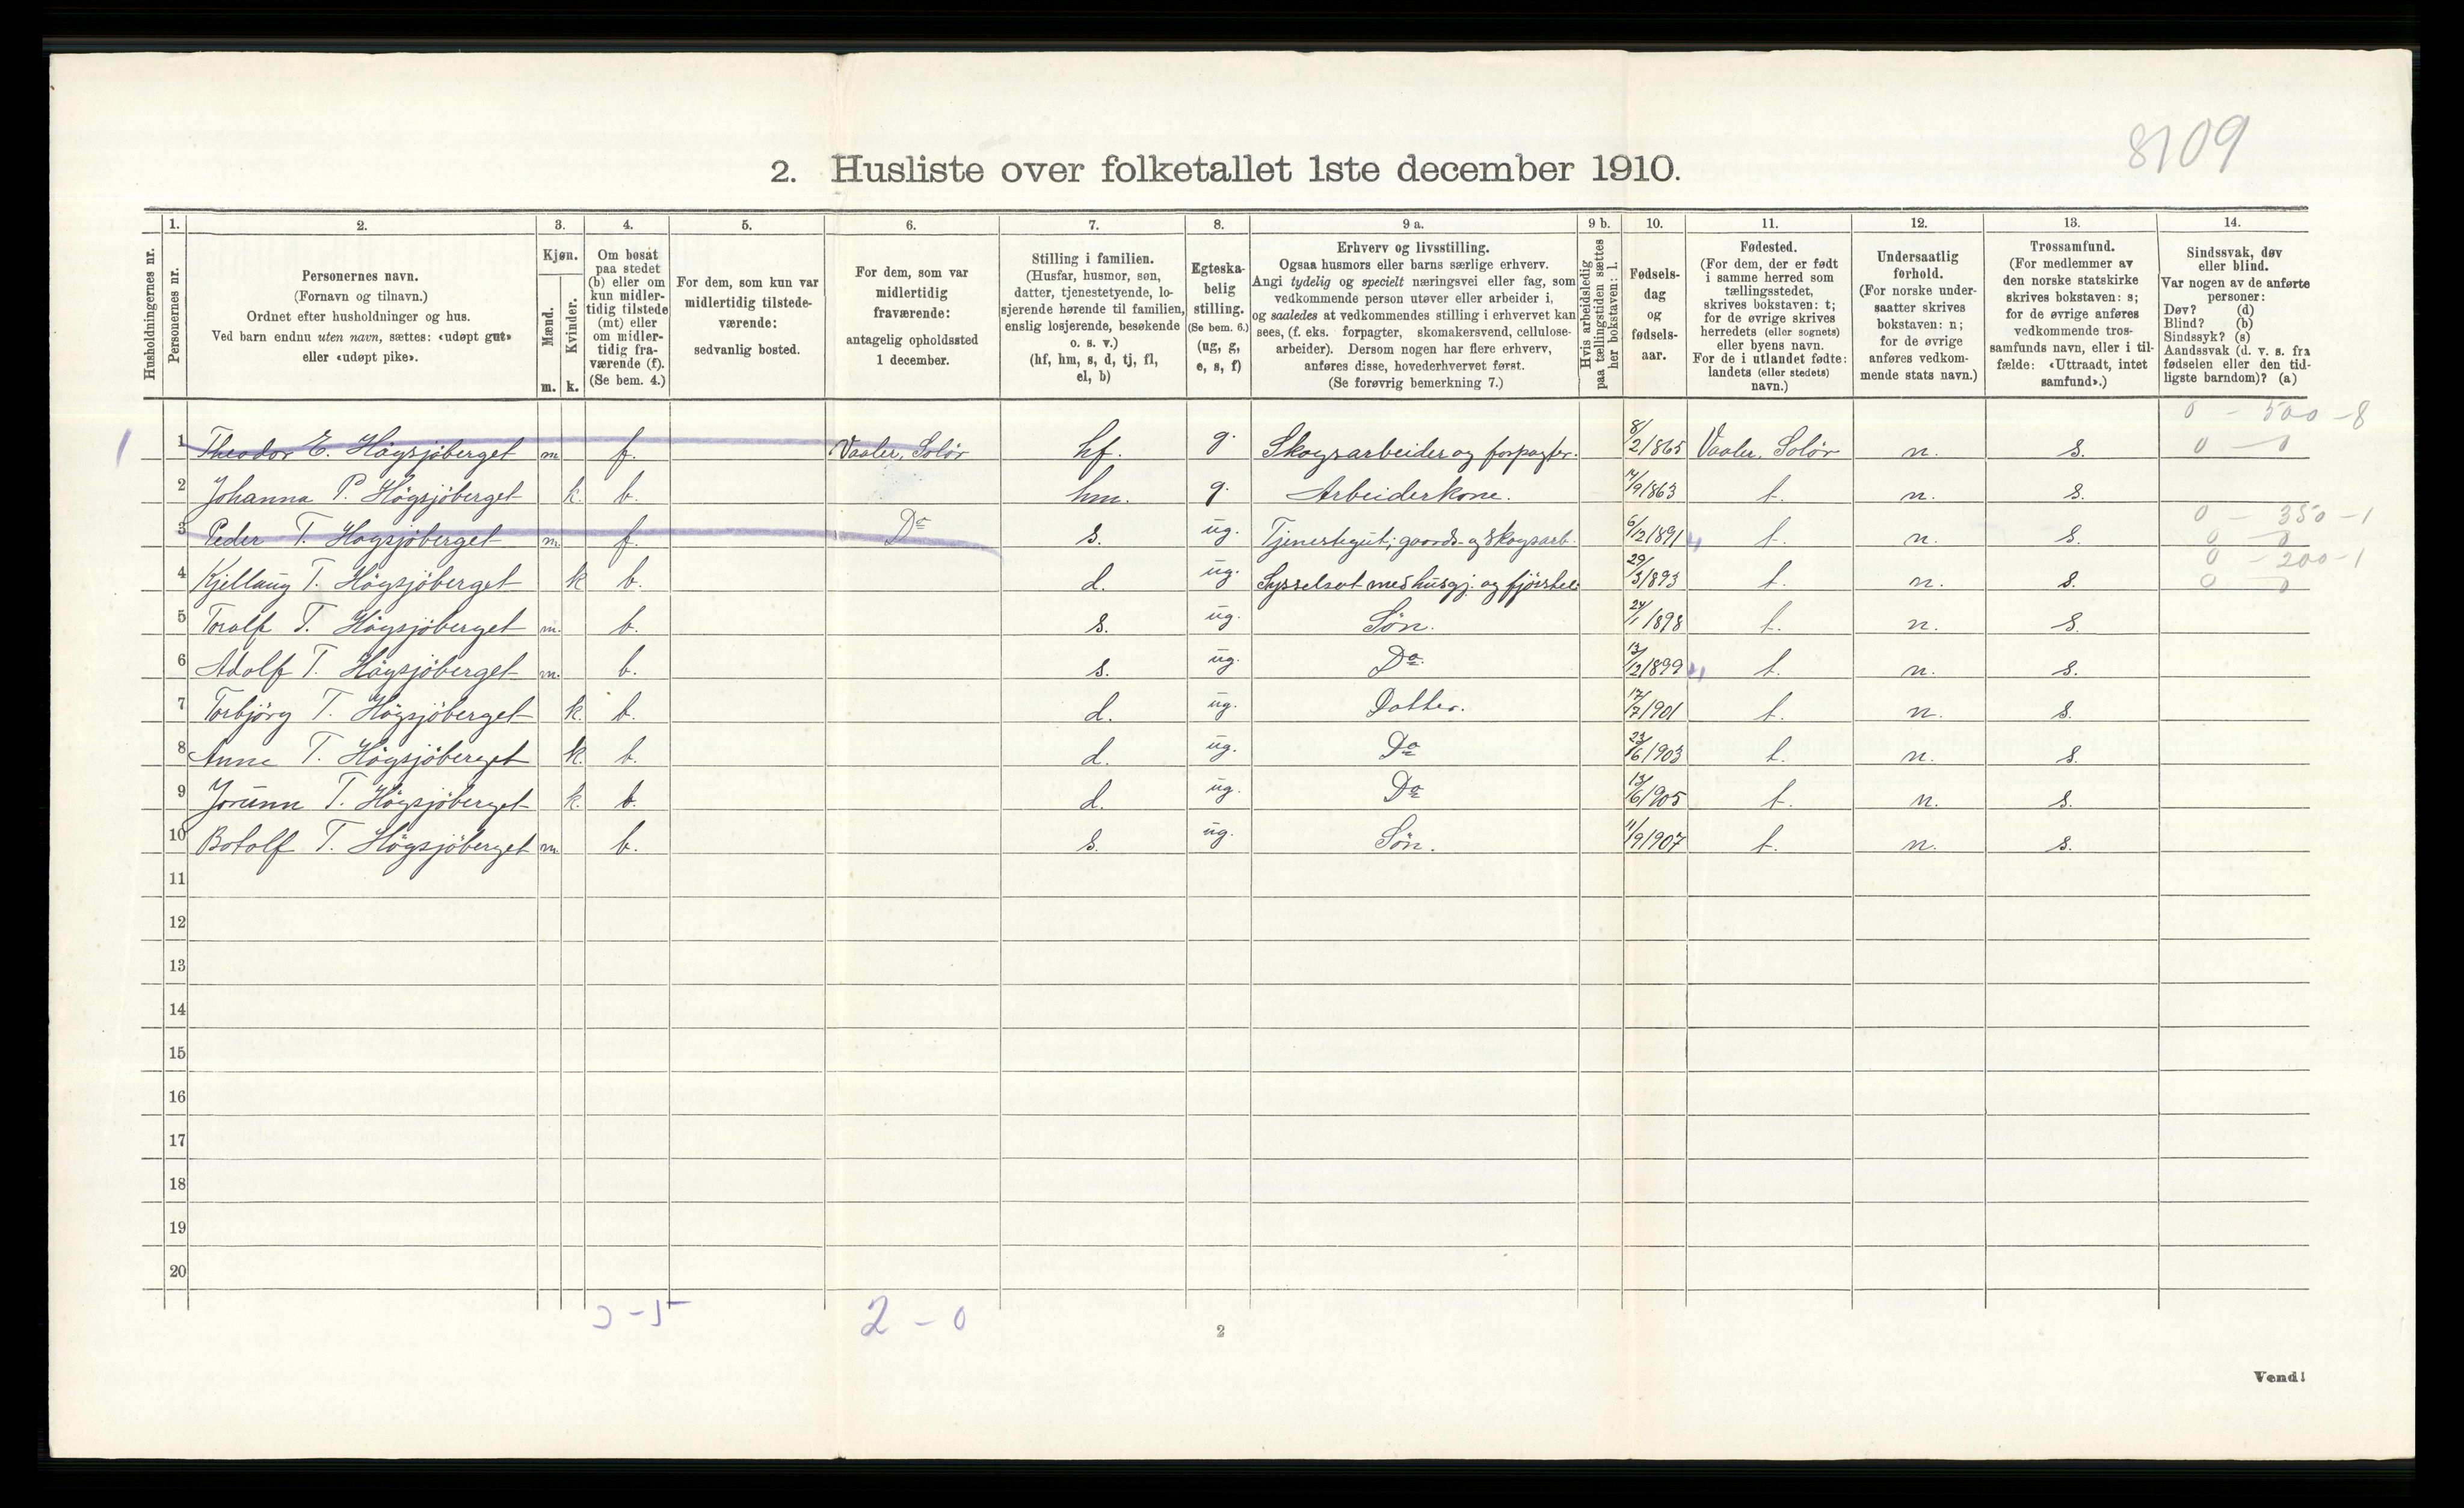 8109
2. Husliste over folketallet 1ste december 1910.
Husholdningernes nr.
1.
Personernes nr.
2.
Personernes navn.
(Fornavn og tilnavn.)
Ordnet efter husholdninger og hus.
Ved barn endnu uten navn, sættes: «udøpt gut»
eller «udøpt pike».
3.
Kjøn.
Mænd.
Kvinder.
m. k.
4.
Om bosat
paa stedet
(b) eller om
kun midler-
tidig tilstede
(mt) eller
om midler-
tidig fra-
værende (f).
(Se bem. 4.)
5.
For dem, som kun var
midlertidig tilstede-
værende:
sedvanlig bosted.
6.
For dem, som var
midlertidig
fraværende:
antagelig opholdssted
1 december.
7.
Stilling i familien.
(Husfar, husmor, søn,
datter, tjenestetyende, lo-
sjerende hørende til familien,
enslig losjerende, besøkende
o. s. v.)
(hf, hm, s, d, tj, fl,
el, b)
8.
Egteska-
belig
stilling.
(Se bem. 6.)
(ug, g,
e, s, f)
9 a.
Erhverv og livsstilling.
Ogsaa husmors eller barns særlige erhverv.
Angi tydelig og specielt næringsvei eller fag, som
vedkommende person utøver eller arbeider i,
og saaledes at vedkommendes stilling i erhvervet kan
sees, (f. eks. forpagter, skomakersvend, cellulose-
arbeider). Dersom nogen har flere erhverv,
anføres disse, hovederhvervet først.
(Se forøvrig bemerkning 7.)
9 b.
Hvis arbeidsledig
paa tællingstiden sættes
her bokstaven: l.
10.
Fødsels-
dag
og
fødsels-
aar.
11.
Fødested.
(For dem, der er født
i samme herred som
tællingsstedet,
skrives bokstaven: t;
for de øvrige skrives
herredets (eller sognets)
eller byens navn.
For de i utlandet fødte:
landets (eller stedets)
navn.)
12.
Undersaatlig
forhold.
(For norske under-
saatter skrives
bokstaven: n;
for de øvrige
anføres vedkom-
mende stats navn.)
13.
Trossamfund.
(For medlemmer av
den norske statskirke
skrives bokstaven: s;
for de øvrige anføres
vedkommende tros-
samfunds navn, eller i til-
fælde: «Uttraadt, intet
samfund».)
14.
Sindssvak, døv
eller blind.
Var nogen av de anførte
personer:
Døv? (d)
Blind? (b)
Sindssyk? (s)
Aandssvak (d. v. s. fra
fødselen eller den tid-
ligste barndom)? (a)
0 - 500 - 8
1 1 Theodor E. Högsjöberget m. f. Vaaler, Solör hf. g. Skogsarbeider og forpagter. 8/2 1865 Vaaler, Solör n. s. 0 - 0
2 Johanna P. Högsjöberget k. b. hm. g. Arbeiderkone. 14/9 1863 t. n. s.
0 - 350 - 1
3 Peder T. Högsjöberget m. f. Do s. ug. Tjenestegut; gaards- og skogsarb. 6/12 1891 t. n. s. 0 - 0
0 - 200 - 1
4 Kjellaug T. Högsjöberget k b. d. ug. Sysselsat med husgj. og fjösstel 29/3 1893 t. n. s. 0 0
5 Toralf T. Högsjöberget m. b. s. ug. Søn. 24/1 1898 t. n. s.
6 Adolf T. Högsjöberget m. b. s. ug. Do. 13/12 1899 t. n. s.
7 Torbjörg T. Högsjöberget k. b. d. ug. Datter. 17/7 1901 t. n. s.
8 Anne T. Högsjöberget k. b. d. ug. Do 23/6 1903 t. n. s.
9 Jorunn T. Högsjöberget k. b. d. ug. Do 13/6 1905 t. n. s.
10 Botolf T. Högsjöberget m. b. s. ug. Søn. 11/9 1907 t. n. s.
11
12
13
14
15
16
17
18
19
20
2 - 0
2
Vend!